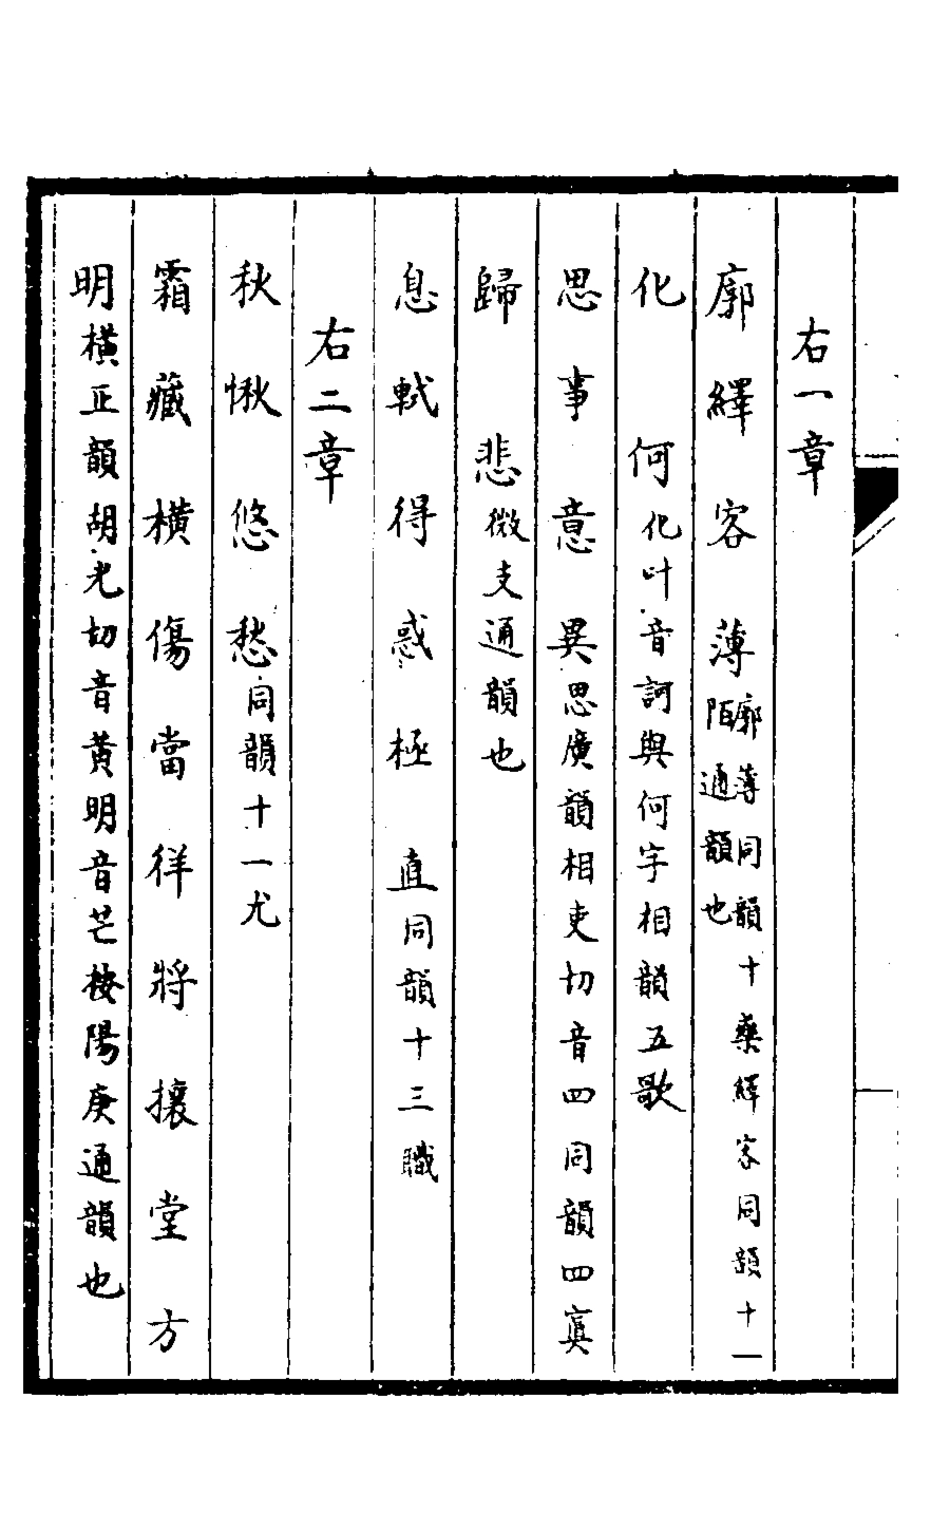 右一章
廓繹客薄廓薄同韻十藥繹客同韻十一陌通韻也
化何化叶音訶與何字相韻五歌
思事意異思廣韻相吏切音四同韻四寘
歸悲微支通韻也
息軾得惑極直同韻十三職
右二章
秋愀悠愁同韻十一尤
霜藏橫傷當徉將攘堂方
明橫正韻胡光切音黃明音芒按陽庚通韻也